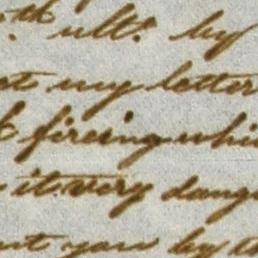 th ult. by
my letter
fireing whi
it very dang
you by th